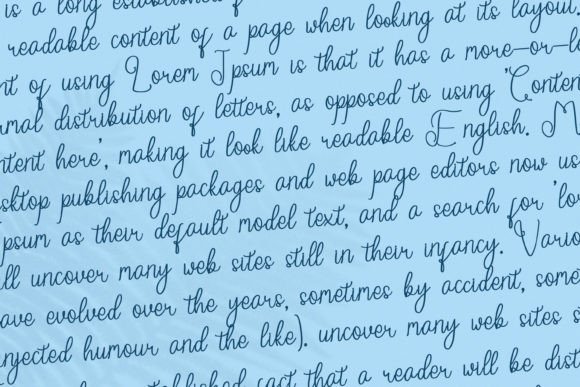 is a long established f
readable content of a page when looking at its layout.
nt of using Lorem Ipsum is that it has a more-or-le
rmal distribution of letters, as opposed to using 'Conten
ntent here', making it look like readable English. M
sktop publishing packages and web page editors now us
psum as their default model text, and a search for 'lor
ill uncover many web sites still in their infancy. Vario
ave evolved over the years, sometimes by accident, some
njected humour and the like). uncover many web sites s
established fact that a reader will be dist